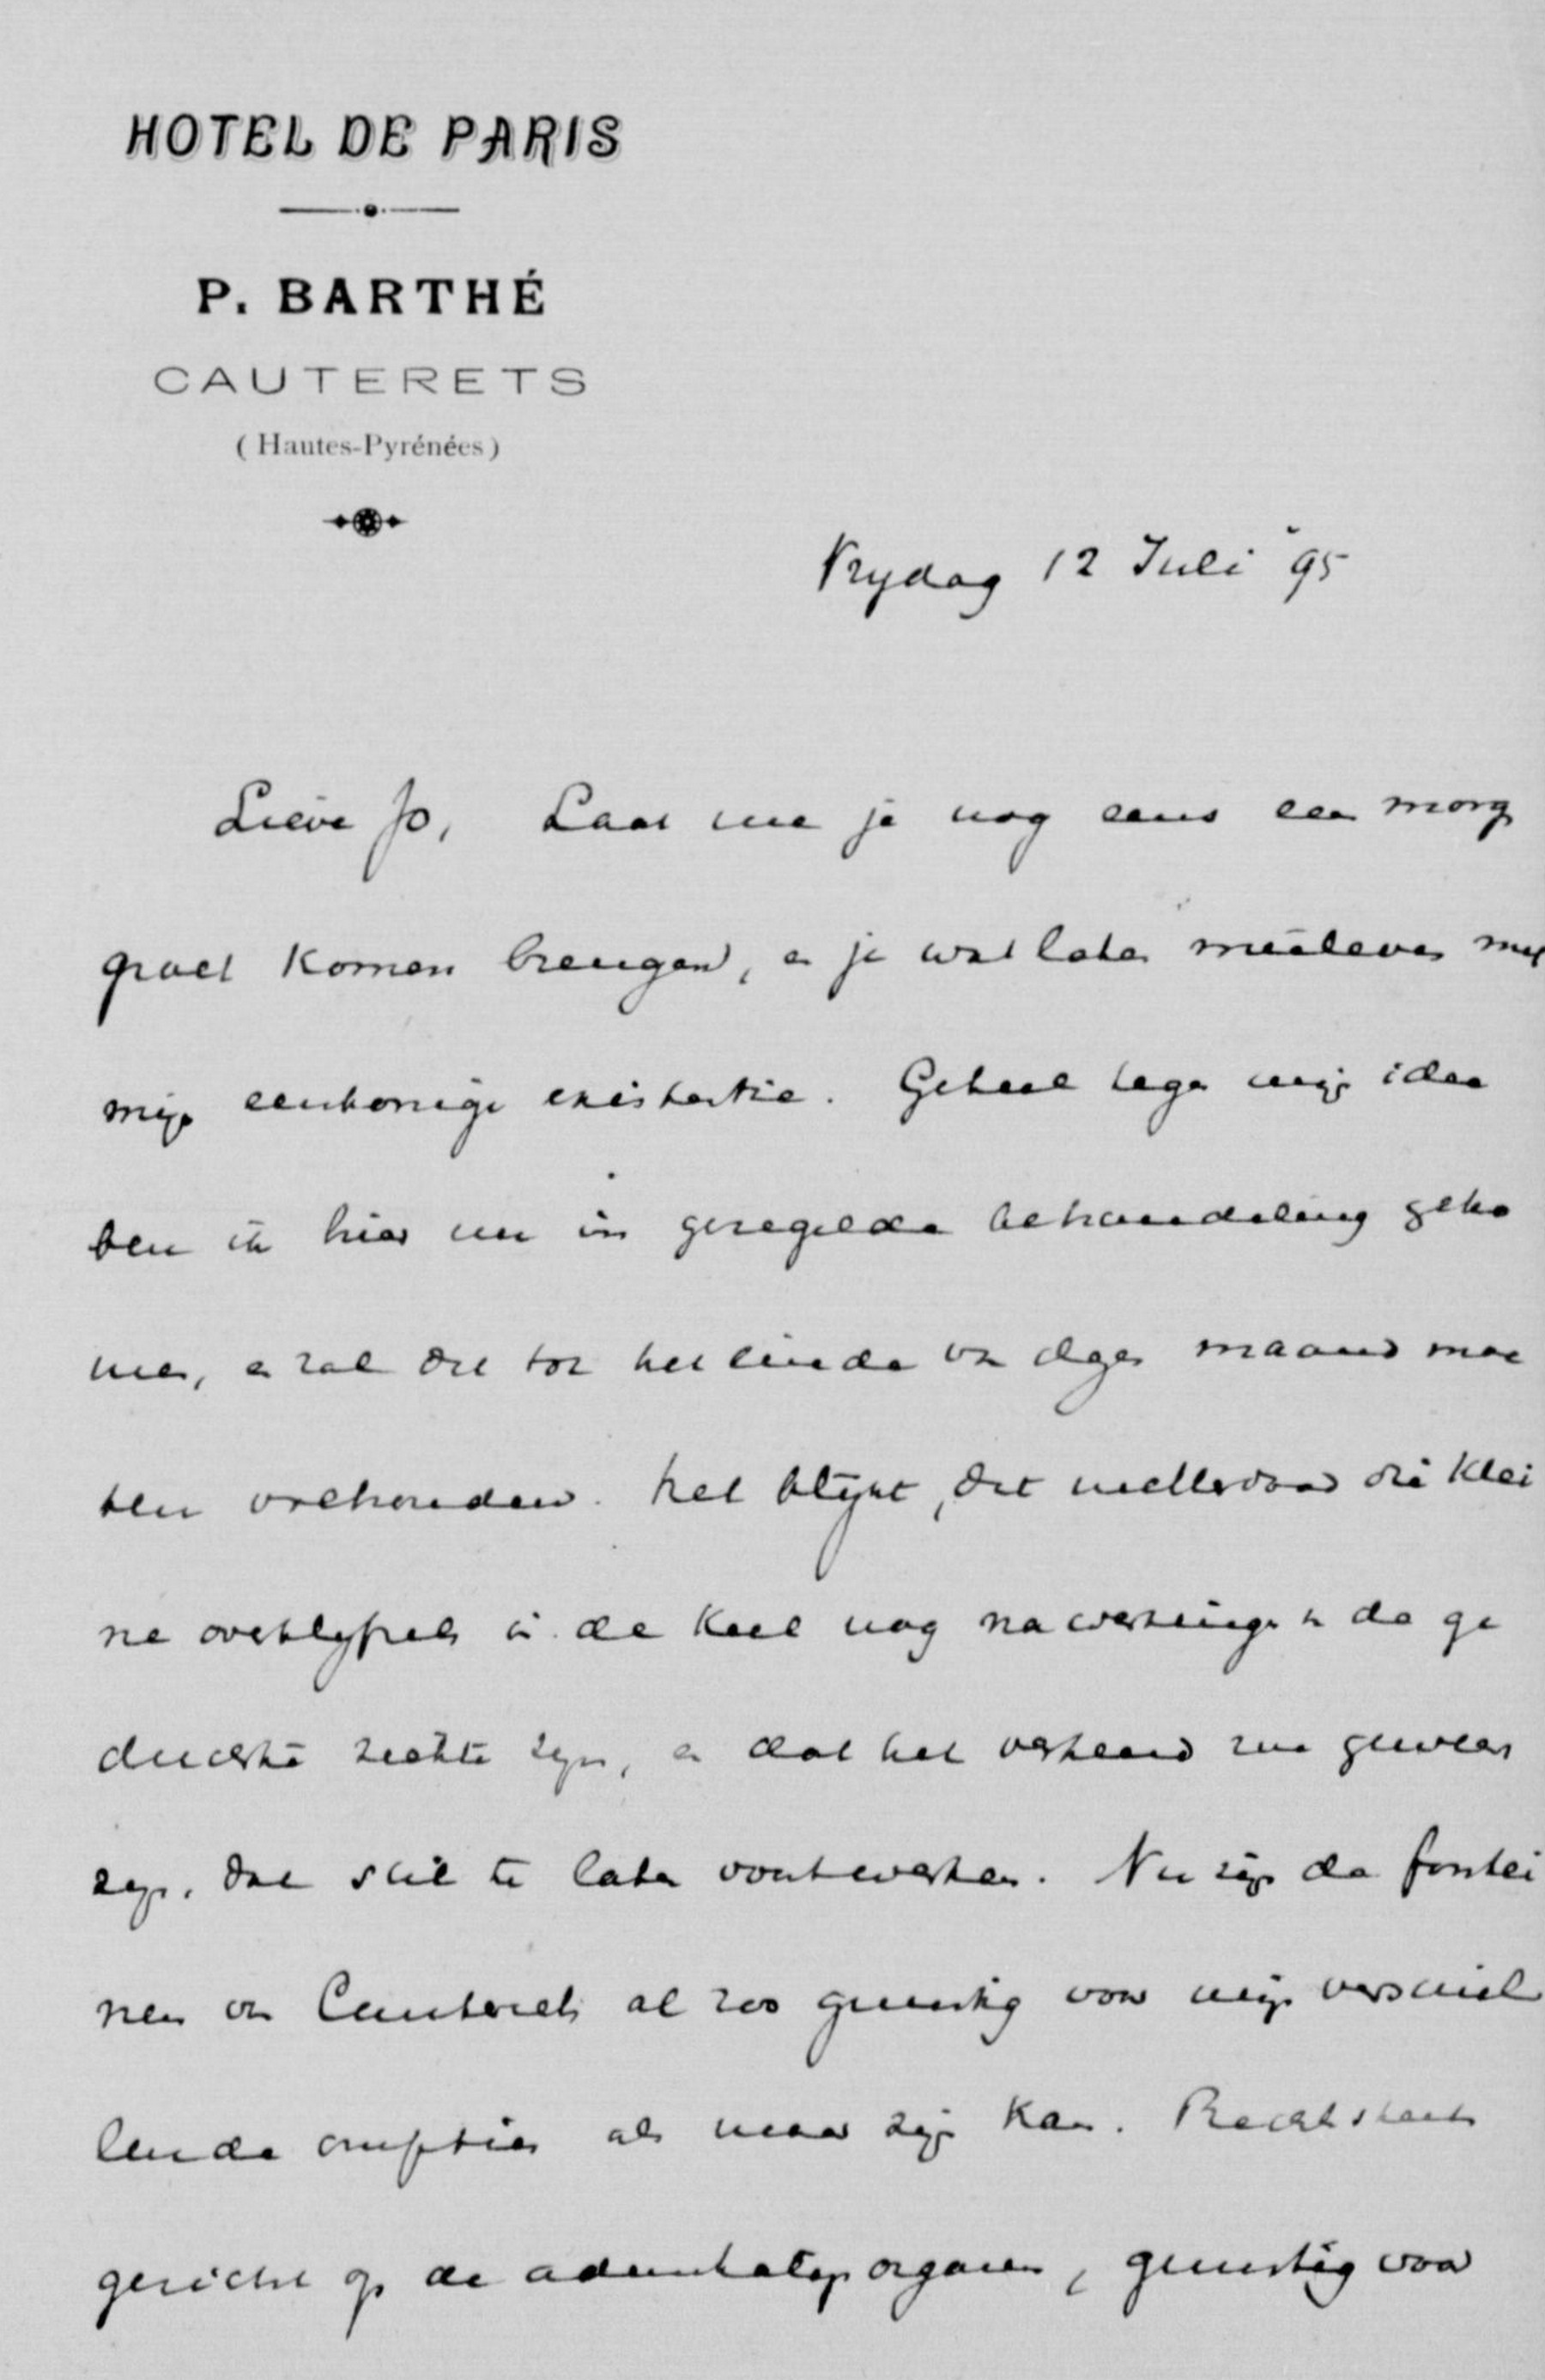 HOTEL DE PARIS
P. BARTHÉ
CAUTERETS
(Hautes-Pyrénées)
Vrydag 12 Juli '95
Lieve Jo, Laat me je nog eens een morgen
groet komen brengen, en je wat laten meeleven met
mijn eentonige existentie. Geheel tegen mijn idee
ben ik hier nu in geregelde behandeling geko
men, en zal dat tot het einde van dezer maand moe
ten volhouden. Het blijkt, dat wellevaar die klei
ne overblyfsels in de keel nog nawerkingen van de ge
duchte ziekte zijn, en dat het verkeerd zou geweest
zijn, dat stil te laten voortwerken. Nu zijn de fontei
nen van Cauterets al zoo gunstig voor mijn verschil
lende
als maar zijn kan. Rechtstreeks
gericht op de ademhalings organen, gunstig voor